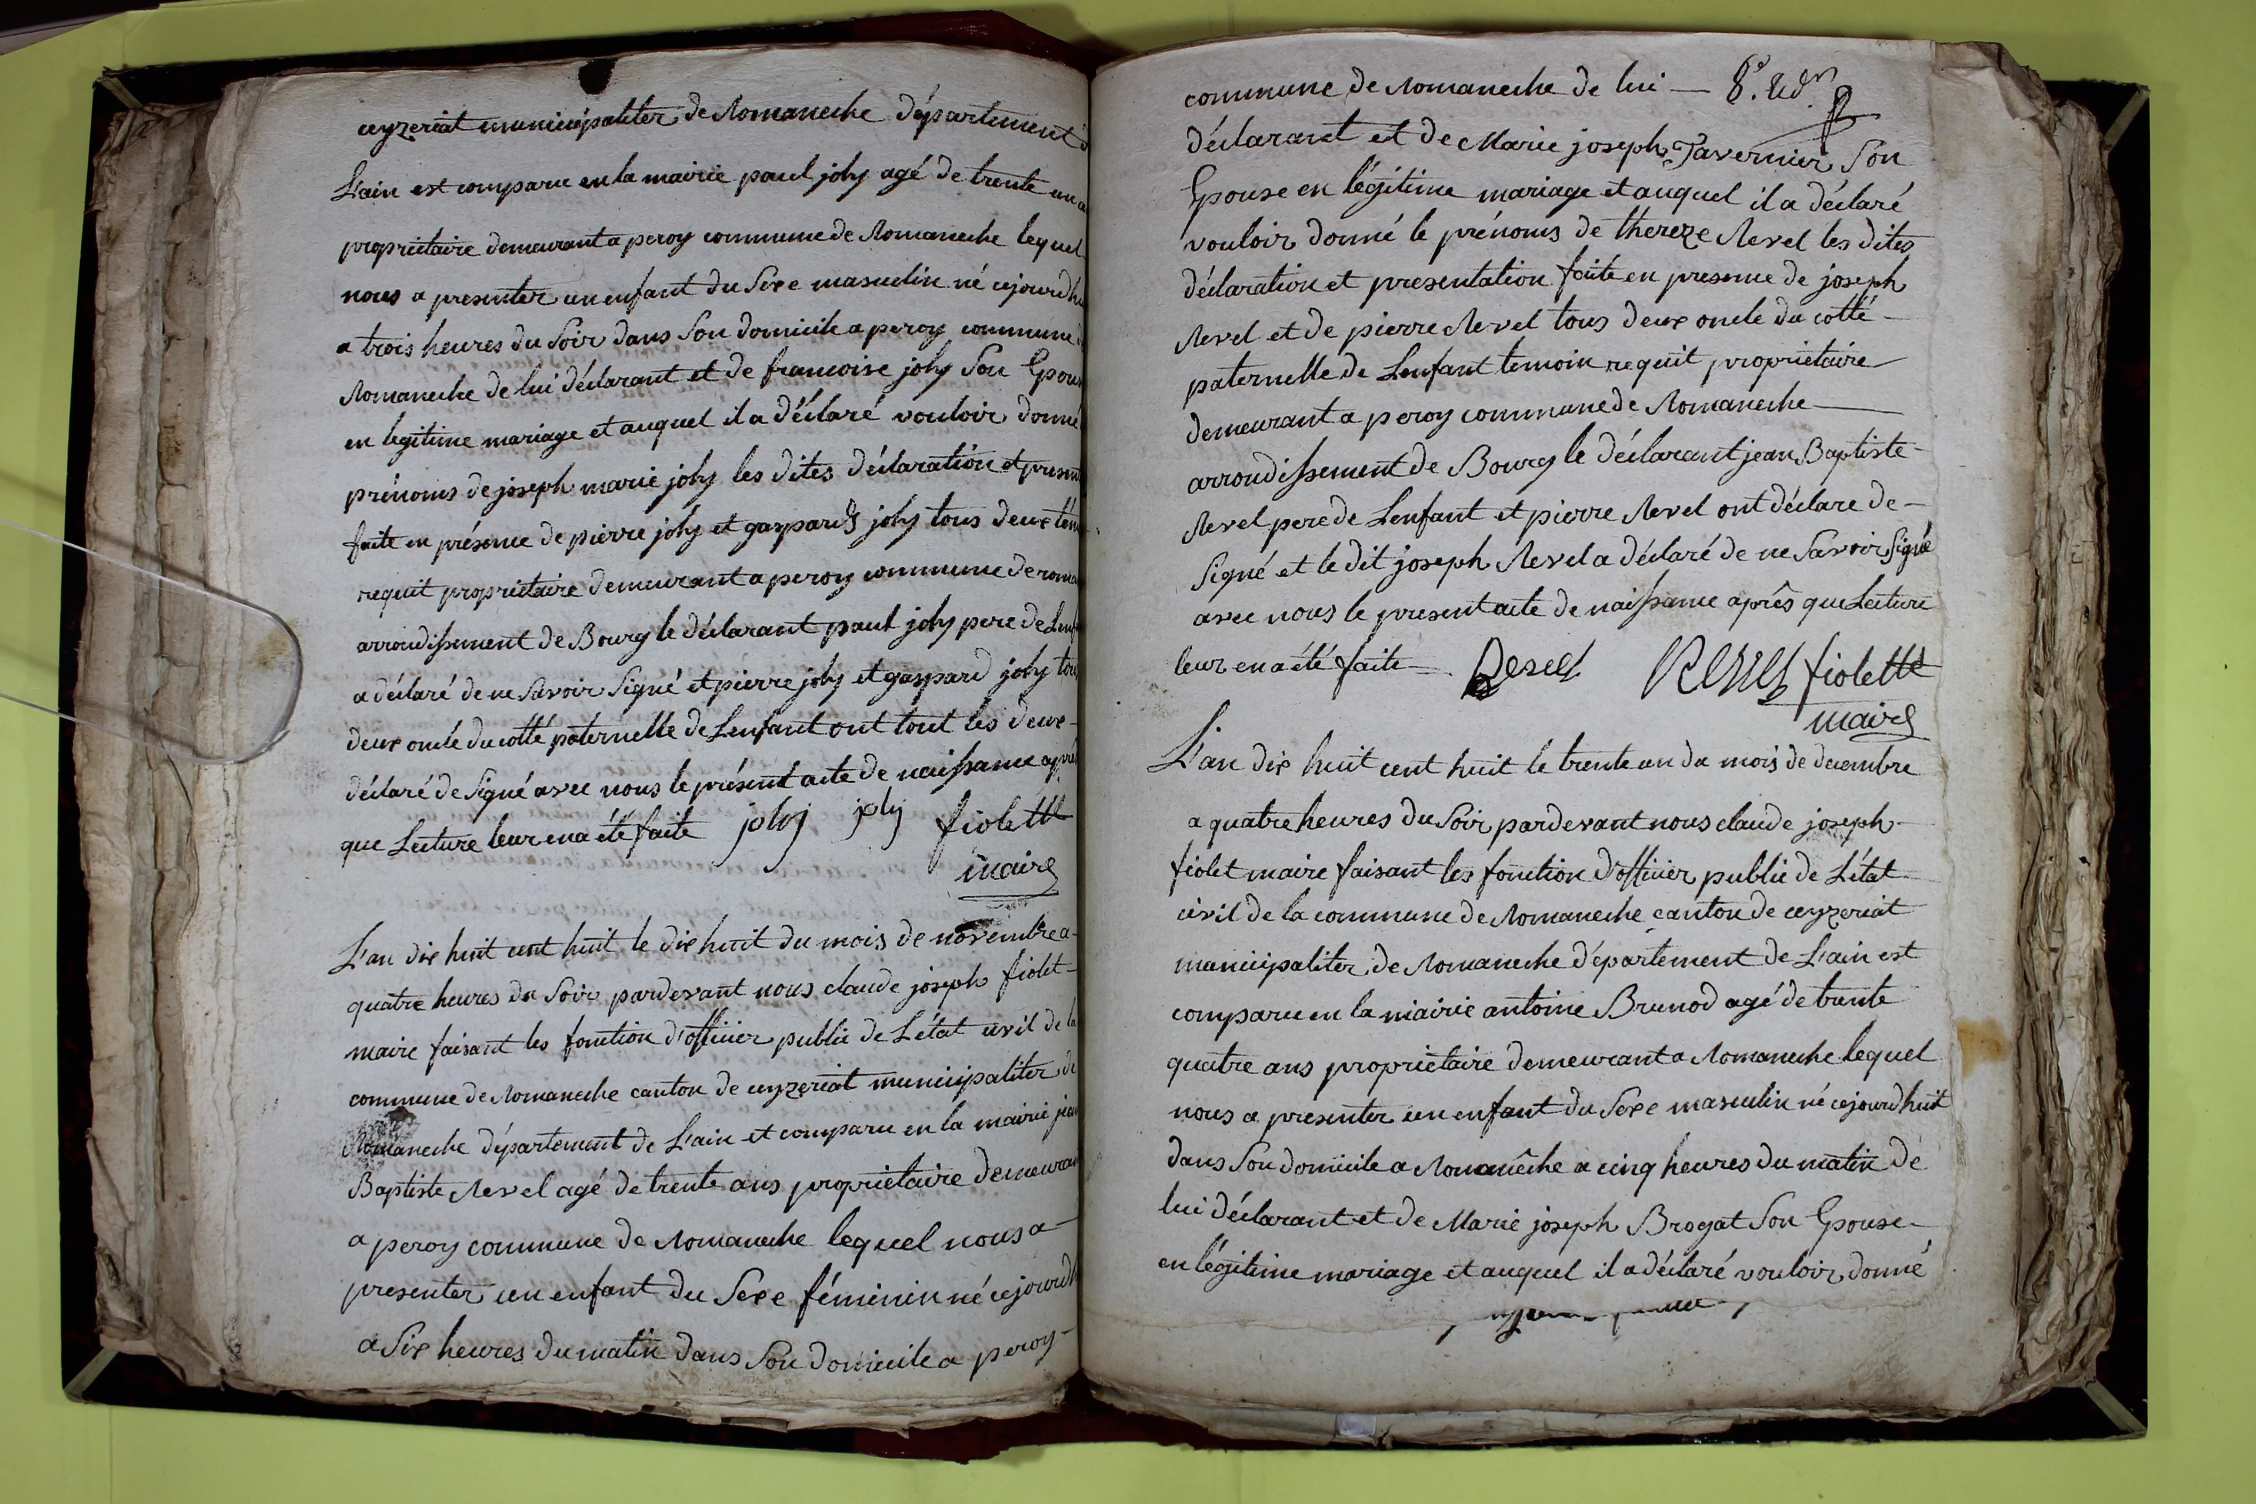 ceyzeriat municipaliter de Romaneche département d
L'ain est comparu en la mairie paul joly agé de trente un a
proprietaire demeurant a peroy commune de Romaneche lequel
nous a presenter un enfant du Sexe masculin né cejourdhu
a trois heures du Soir dans Son domicile a peroy commune d
Romaneche de lui déclarant et de francoise joly Son Epou
en legitime mariage et auquel il a déclaré vouloir donné
prénoms de joseph marie joly les dites déclaration et presen
faite en présence de pierre joly et gaspard joly tous deux tém
requit proprietaire demeurant a peroy commune de roma
arrondissement de Bourg le déclarant paul joly pere de Lenf
a déclaré de ne Savoir Signé et pierre joly et gaspard joly tou
deux oncle du cotté paternelle de Lenfant ont tout les deux -
déclaré de Signé avec nous le présent acte de naissance aprè
que Lecture leur en a été faite joly joly fiolette
maire
L'an dix huit cent huit le dix huit du mois de novembre a -
quatre heures du Soir pardevant nous claude joseph fiolet -
maire faisant les fonction d'officier public de L'état civil de la
commune de Romaneche canton de ceyzeriat municipaliter de
Romaneche département de L'ain et comparu en la mairie jean
Baptiste Revel agé de trente ans proprietaire demeuran
a peroy commune de Romaneche lequel nous a -
presenter un enfant du Sexe féminin né cejourdh
a Six heures du matin dans Son domicile a peroy -
commune de Romaneche de lui — 8e.
déclarant et de Marie joseph Tavernier Son
Epouse en légitime mariage et auquel il a déclaré
vouloir donné le prénoms de thereze Revel les dites
déclaration et presentation faite en presence de joseph
Revel et de pierre Revel tous deux oncle du cotté -
paternelle de Lenfant temoin requit proprietaire
demeurant a peroy commune de Romaneche —
arrondissement de Bourg le déclarant jean Baptiste -
Revel pere de Lenfant et pierre Revel ont déclare de -
Signé et le dit joseph Revel a déclaré de ne Savoir Signé
avec nous le present acte de naissance après que Lecture
leur en a été faite — Revel REVEL fiolette
maire
L'an dix huit cent huit le trente un du mois de decembre
a quatre heures du Soir pardevant nous claude joseph -
fiolet maire faisant les fonction d'officier public de L'état -
civil de la commune de Romaneche canton de ceyzeriat
municipaliter de Romaneche département de L'ain est
comparu en la mairie antoine Brunod agé de trente
quatre ans proprietaire demeurant a Romaneche lequel
nous a presenter un enfant du Sexe masculin né cejourdhuit
dans Son domicile a Romanêche a cinq heures du matin de
lui déclarant et de Marie joseph Brogat Son Epouse -
en légitime mariage et auquel il a déclaré vouloir donné